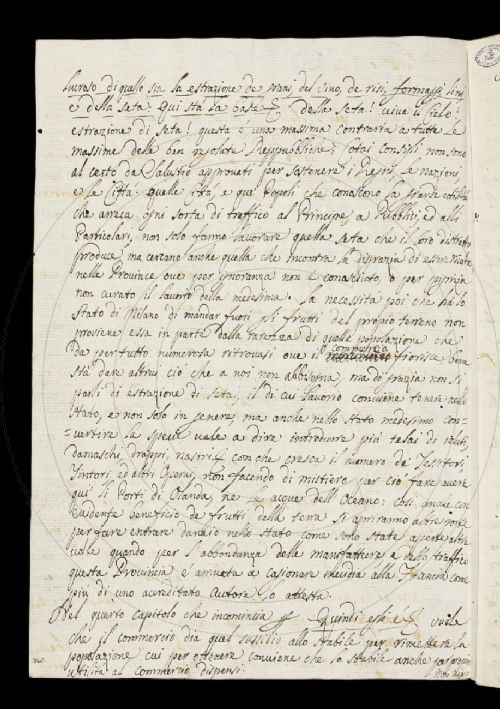 lucroso di quello sia la estrazione de grani, del vino, de risi, formaggi lini
e della seta: Qui sta la base &. della seta! viva il Cielo!
estrazione di seta! questa è una massima contraria a tutte le
massime delle ben regolate Reppubbliche; Cotai Consigli non sono
al certo da Salustio approvati per sostenere i Regni, le nazioni,
e le Città: quelle Città e que' Popoli che conoscono la grande utilità
che arreca ogni sorta di traffico al Principe, a Pubblici, ed alli
Particolari, non solo fanno lavorare quella seta che il loro distretto
produce, ma cercano anche quella che incontra la disgrazia di esser nata
nelle Province ove per ignoranza non è conosciuto, o per
non curato il lavoro della medesima. La necessità poi che ha lo
Stato di Milano di mandar fuori gli frutti del proprio terreno non
proviene essa in parte dalla carenza di quella popolazione che
da per tutto numerosa ritrovasi ove il commercio fiorisce? Bene
stà dare altrui ciò che a noi non abbisogna, ma di grazia non si
parli di estrazione di seta, il di cui lavorio conviene tenere nello
Stato, e non solo in genere, ma anche nello Stato medesimo con-
=vertire la specie vale a dire introdurre più telai di veluti,
damaschi, drappi, nastri & con che cresca il numero de Tessitori
Tintori ed altri Operai, non facendo di mistiero per ciò fare avere
qui li Porti di Olanda, ne le acque dell'Oceano: Così anche con
evidente beneficio de frutti della terra si apriranno altre porte
per fare entrare danaio nello Stato come sono state aperte altre
volte quando per l'abbondanza delle manifatture e dello traffico
questa Provincia è arrivata a cagionare invidia alla Francia come
più di uno accreditato Autore lo attesta.
Nel quarto capitolo che incomincia Quindi egli è & vuole
che il commercio dia quel susidio allo stabile per rimettere la
popolazione cui per ottenere conviene che lo stabile anche
utilità al commercio dispensi.